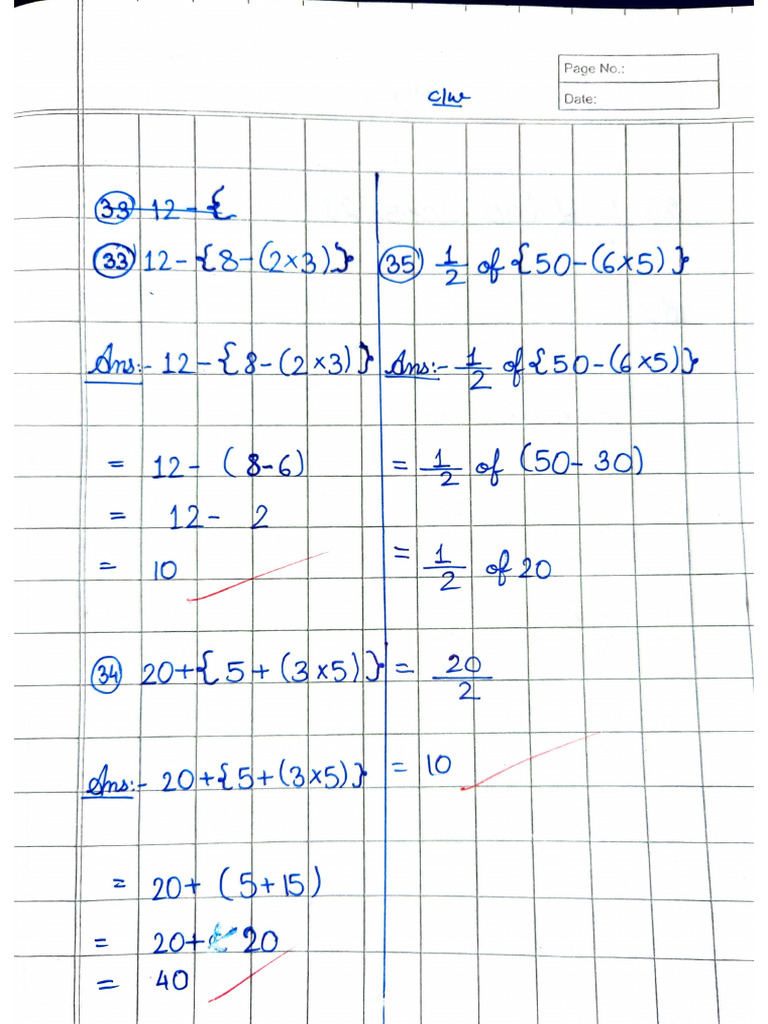 Page No.:
c/w
Date:
33 12 - {
33 12 - {8 - (2×3)}
Ans:- 12 - {8 - (2×3)}
= 12 - (8-6)
= 12 - 2
= 10
34 20+{5+(3×5)}
Ans:- 20+{5+(3×5)}
= 20+ (5+15)
= 20+ 20
= 40
35 1/2 of {50-(6×5)}
Ans:- 1/2 of {50-(6×5)}
= 1/2 of (50-30)
= 1/2 of 20
= 20/2
= 10